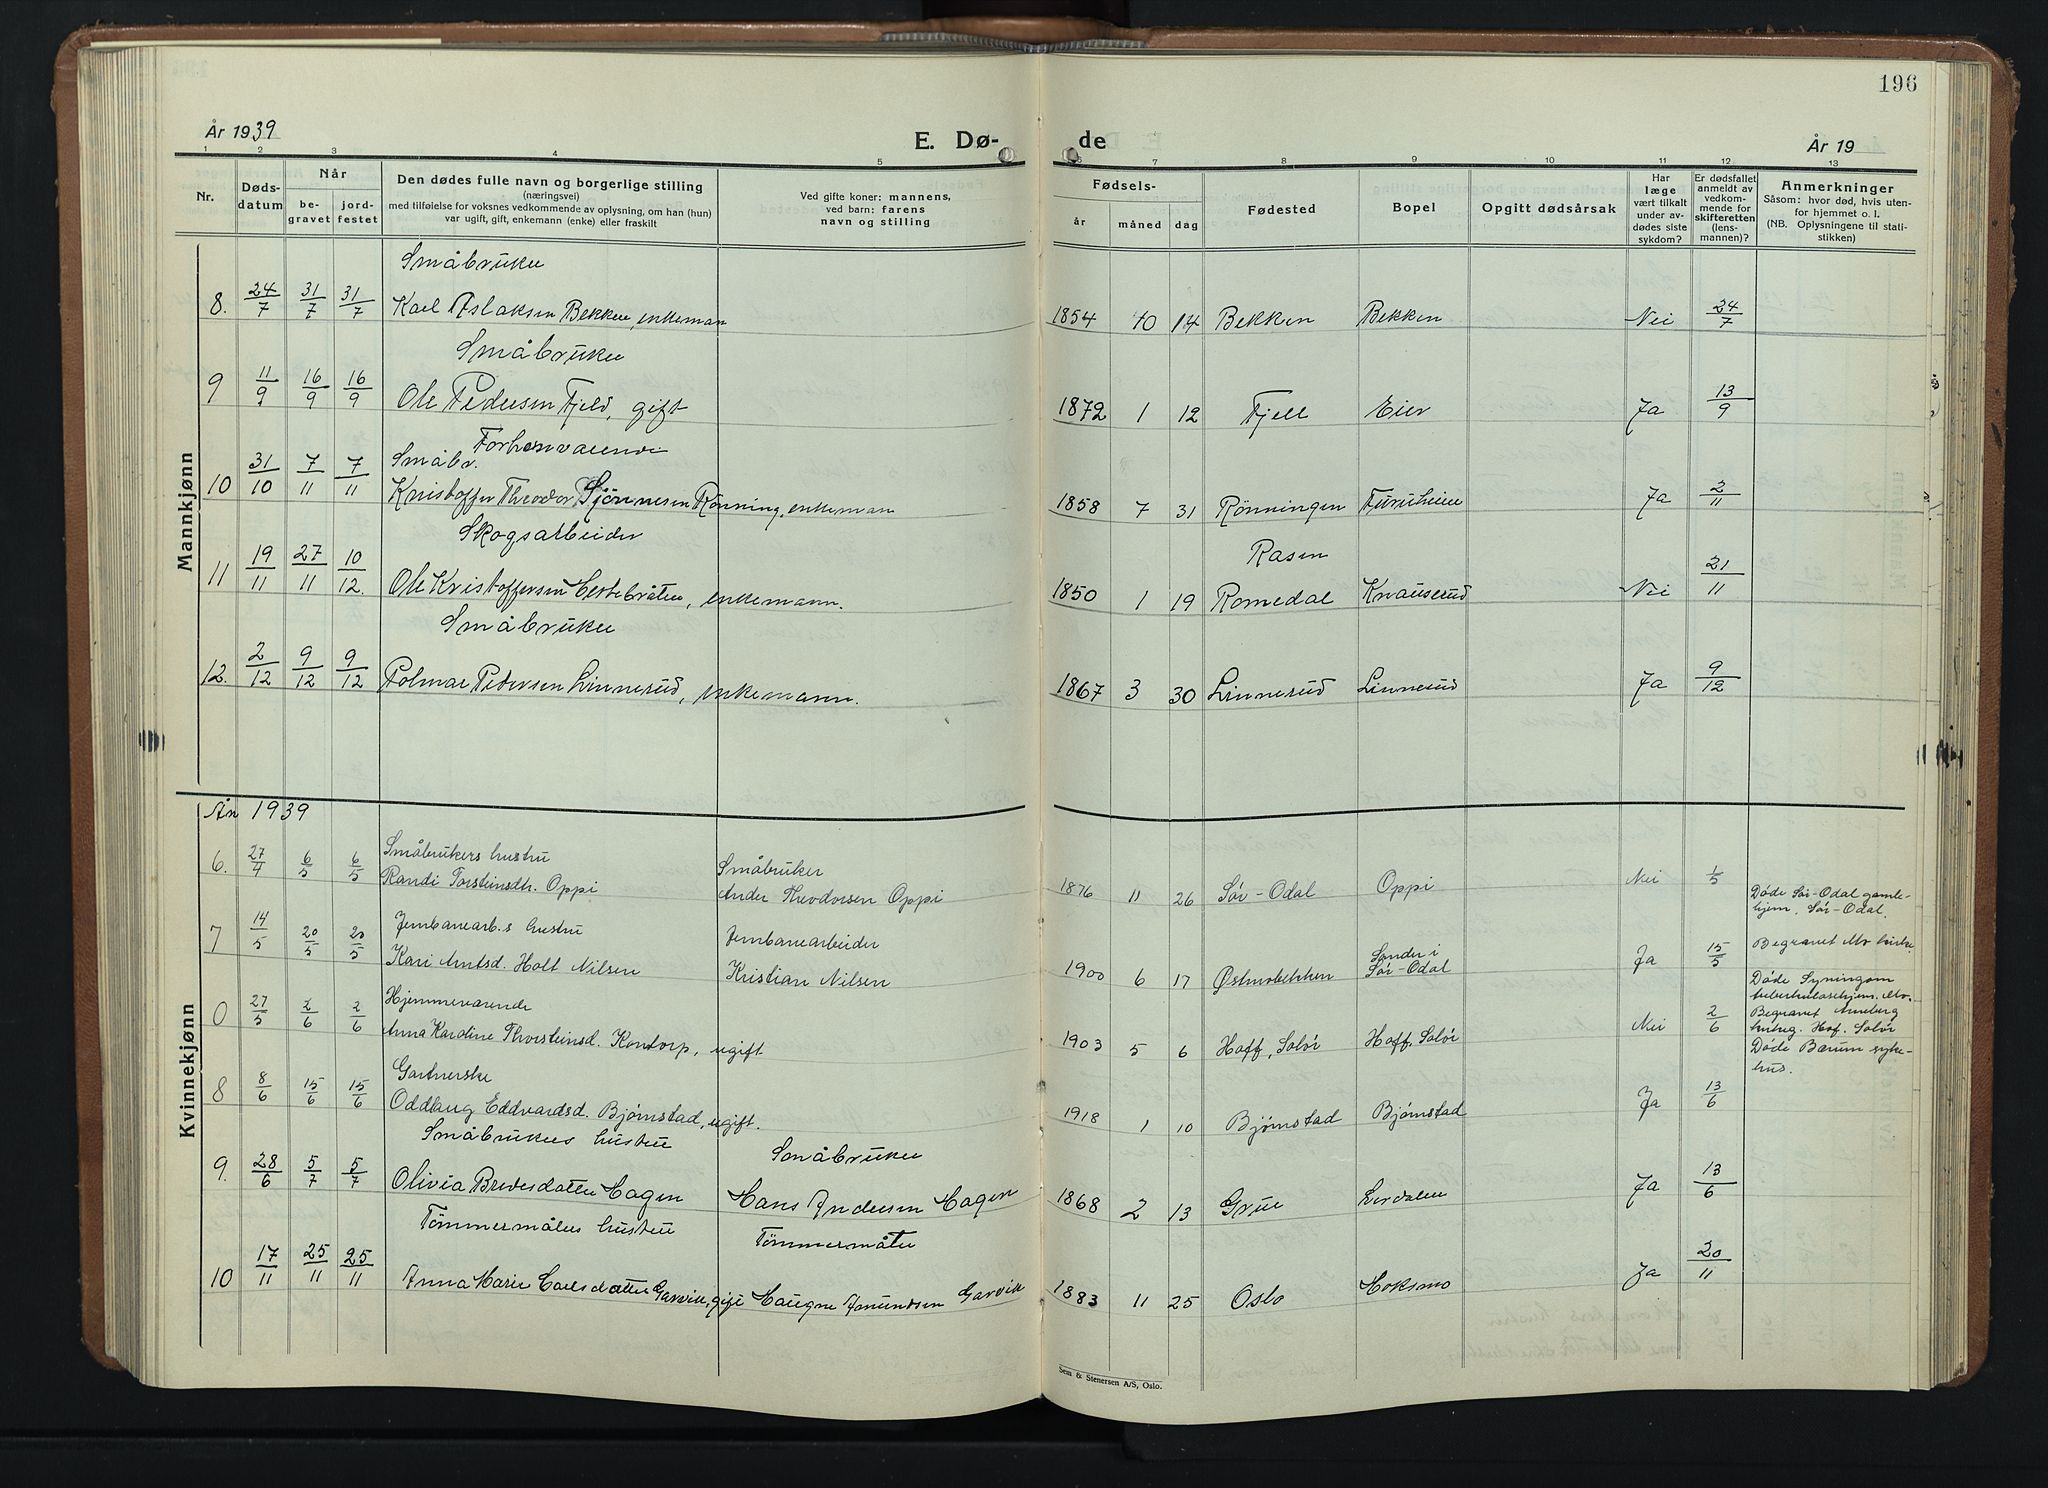 196
År 1939
E. Dø-
de
År 19
1 2 3 4 5 6 7 8 9 10 11 12 13
Nr.
Døds-
datum
Når
be-
gravet
jord-
festet
Den dødes fulle navn og borgerlige stilling
(næringsvei)
med tilføielse for voksnes vedkommende av oplysning, om han (hun)
var ugift, gift, enkemann (enke) eller fraskilt
Ved gifte koner: mannens,
ved barn: farens
navn og stilling
Fødsels-
år måned dag
Fødested
Bopel
Opgitt dødsårsak
Har
læge
vært tilkalt
under av-
dødes siste
sykdom?
Er dødsfallet
anmeldt av
vedkom-
mende for
skifteretten
(lens-
mannen)?
Anmerkninger
Såsom: hvor død, hvis uten-
for hjemmet o. l.
(NB. Oplysningene til stati-
stikken)
Mannkjønn
Småbruker
8. 24/7 31/7 31/7 Karl Aslaksen Bekken, enkeman 1854 10 14 Bekken Bekken Nei 24/7
Småbruker
9 11/9 16/9 16/9 Ole Pedersen Fjeld, gift 1872 1 12 Fjell Eier Ja 13/9
Forhenværende
Småbr.
10 31/10 7/11 7/11 Kristoffer Theodor Sjønnesen Rönning, enkeman 1858 7 31 Rönningen Furuheim Ja 2/11
Skogsarbeider Rasen
11 19/11 27/11 10/12. Ole Kristoffersen Hestebråten, enkemann. 1850 1 19 Romedal Knauserud Nei 21/11
Småbruker
12. 2/12 9/12 9/12 Polmar Pedersen Linnerud, enkemann. 1867 3 30 Linnerud Linnerud Ja 9/12
Kvinnekjønn
År 1939
Småbrukers hustru Småbruker
6. 27/4 6/5 6/5 Randi Torsteinsdtr. Oppi Ander Theodorsen Oppi 1876 11 26 Sør-Odal Oppi Nei 1/5
Døde Sør-Odal gamle-
hjem, Sør-Odal.
Jernbanearb.s hustru Jernbanearbeider
7 14/5 20/5 20/5 Kari Arntsd. Holt Nilsen Kristian Nilsen 1900 6 17 Østmobekken Sander i
Sør-Odal Ja 15/5
Begravet Mo kirke.
Døde Syningom
tuberkulosehjem. Mo.
Hjemmeværende
0 27/5 2/6 2/6 Anna Karoline Thorsteinsd. Kontorp, ugift 1903 5 6 Hoff, Solør Hoff, Solør Nei 2/6
Begravet Arneberg
kirkeg. Hof. Solør
Døde Bærum syke-
hus.
Gartnerske
8 8/6 15/6 15/6 Oddlaug Eddvardsd. Bjørnstad, ugift. 1918 1 10 Bjørnstad Bjørnstad Ja 13/6
Småbrukers hustru Småbruker
9. 28/6 5/7 5/7 Olivia Bredesdatter Hagen Hans Andersen Hagen 1868 2 13 Grue Lierdalen Ja 13/6
Tömmermålers hustru Tömmermåler
10 17/11 25/11 25/11 Anna Marie Carlsdatter Garvik, gift Haugne Amundsen Garvik 1883 11 25 Oslo Hoksmo Ja 20/11
Sem & Stenersen A/S, Oslo.